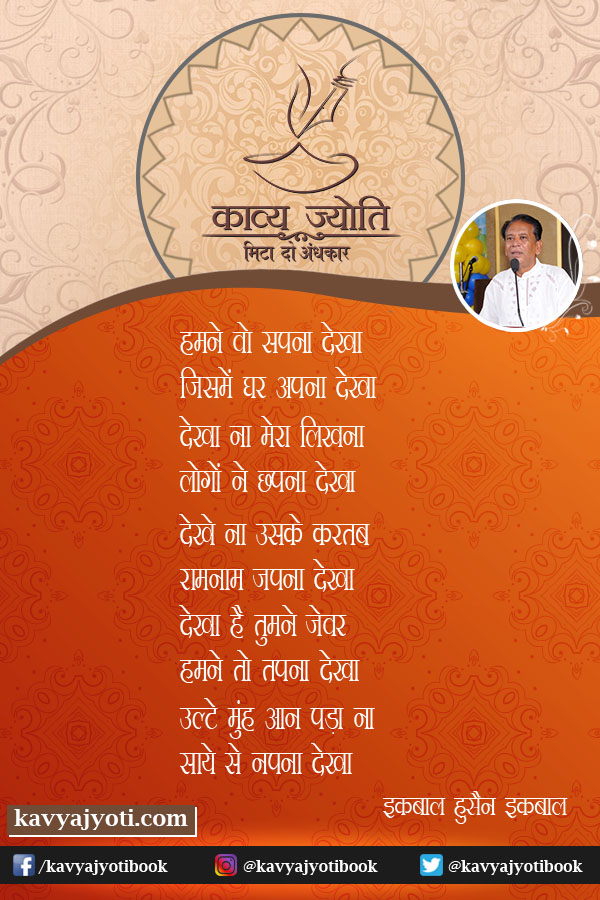 काव्य ज्योति
मिटा दो अंधकार
हमने वो सपना देखा
जिसमें घर अपना देखा
देखा ना मेरा लिखना
लोगों ने छपना देखा
देखे ना उसके करतब
रामनाम जपना देखा
देखा है तुमने जेवर
हमने तो तपना देखा
उल्टे मुंह आन पड़ा ना
साये से नपना देखा
इकबाल हुसैन इकबाल
kavyajyoti.com
/kavyajyotibook @kavyajyotibook @kavyajyotibook